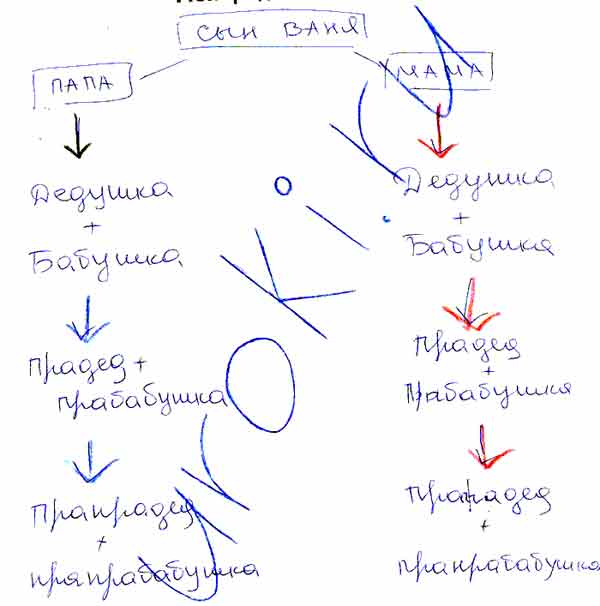 СЫН ВАНЯ
ПАПА
МАМА
Дедушка
+
Бабушка
Прадед +
прабабушка
Прапрадед
+
прапрабабушка
Дедушка
+
Бабушка
Прадед
+
Прабабушка
Прапрадед
+
прапрабабушка